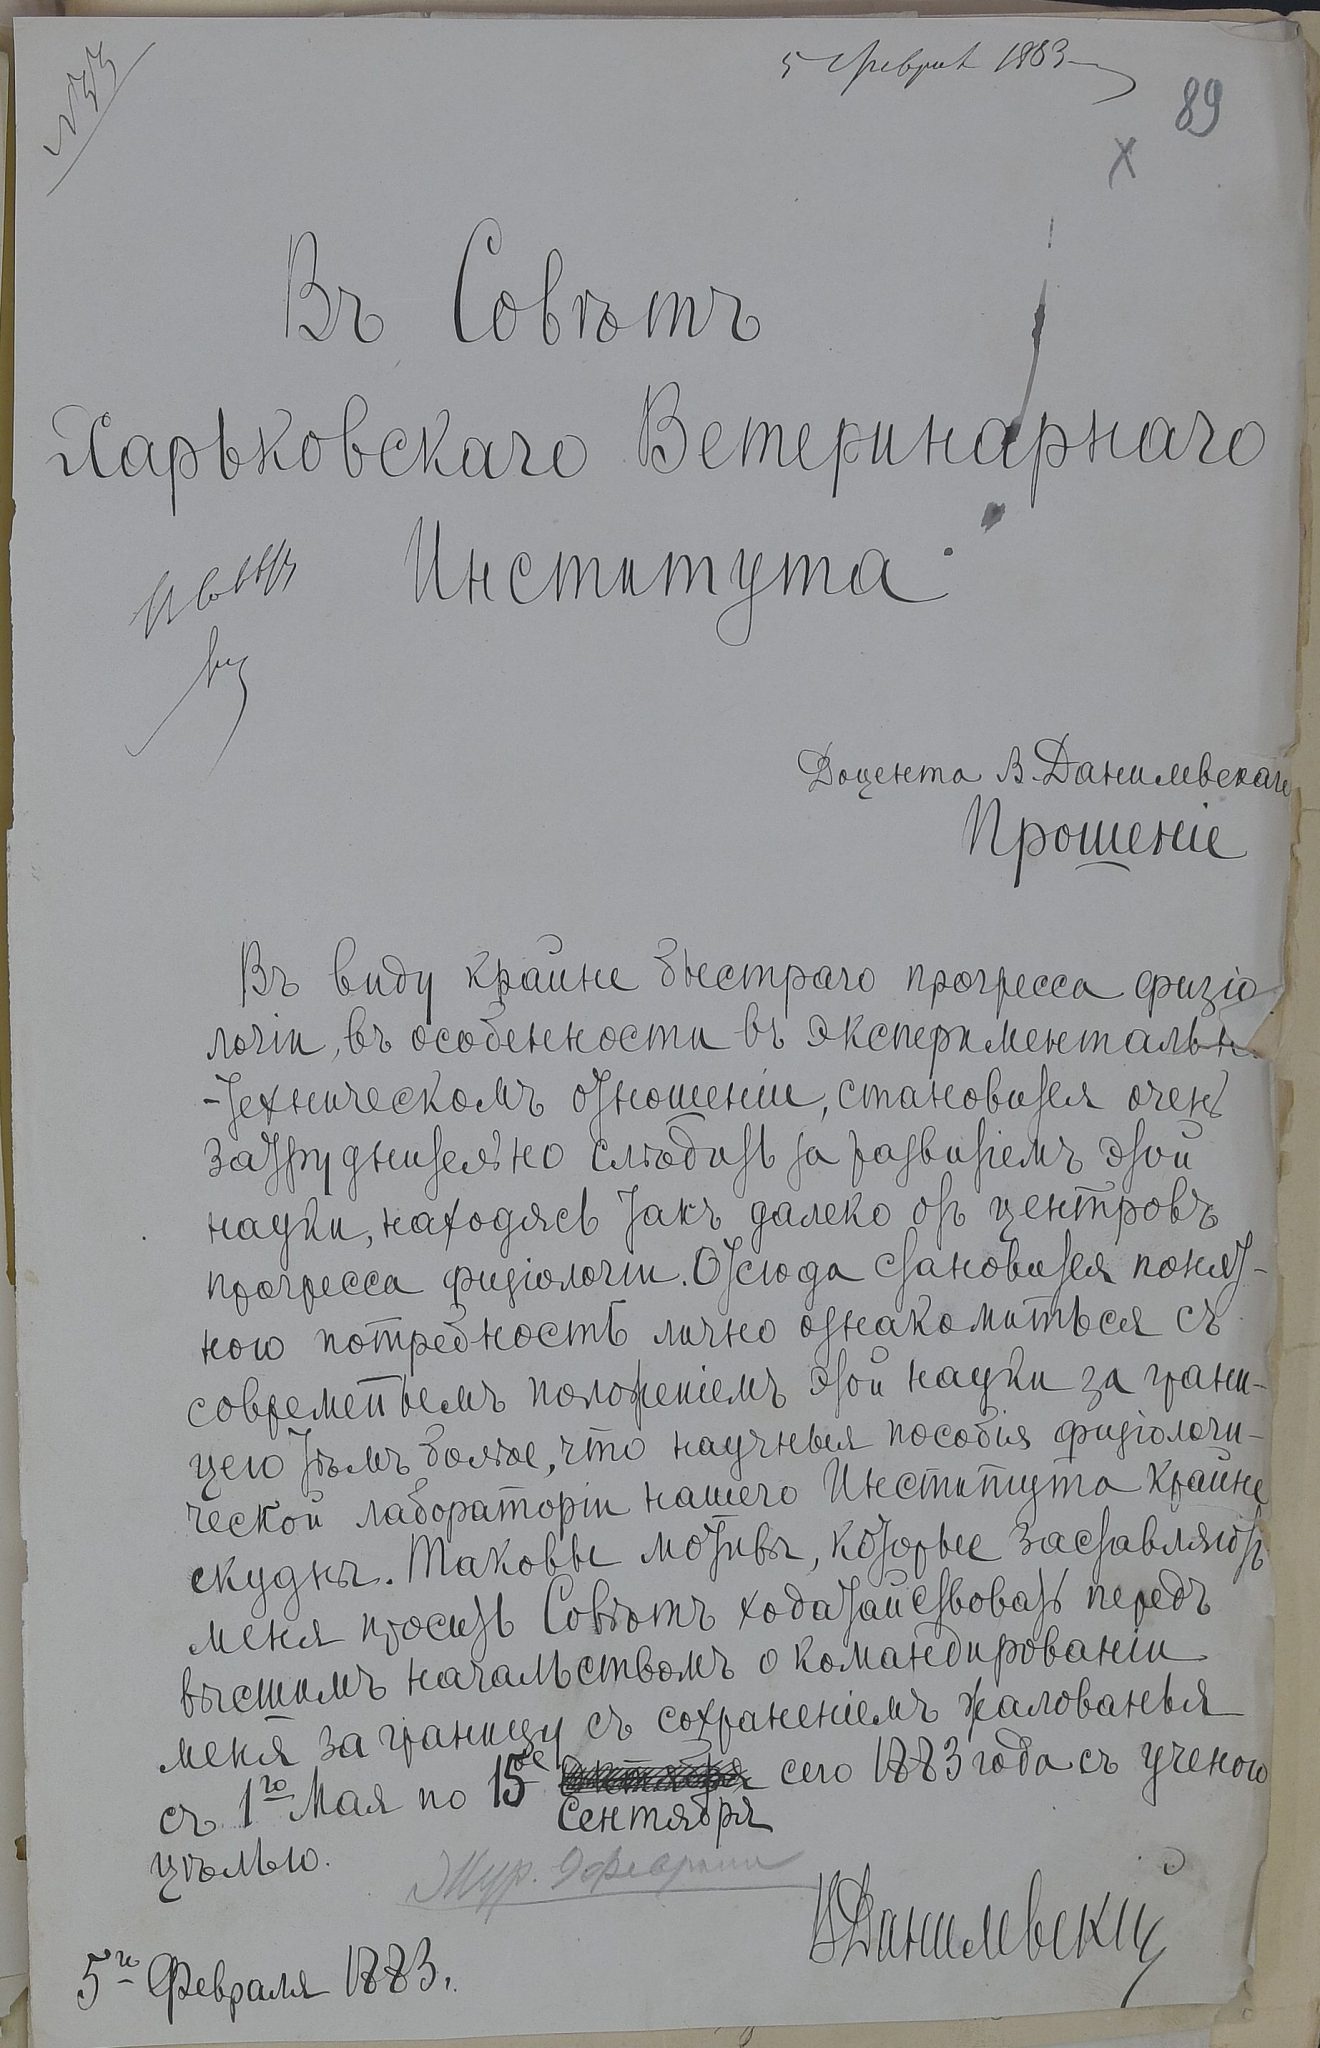 5 Февраля 1883
89
Х
Въ Совѣтъ
Харьковскаго Ветеринарнаго
Института
Доцента В. Данилевскаго
Прошеніе
Въ виду крайне быстраго прогресса физіо
логіи, въ особенности въ эксперименталън.
-техническомъ отношеніи, становится очень
затруднительно слѣдить за развитіемъ этой
науки, находясь такъ далеко отъ центровъ
прогресса физіологіи. Отсюда становится понят-
ною потребность лично ознакомиться съ
современнымъ положеніемъ этой науки за грани-
цею тѣмъ болѣе, что научныя пособія физіологи-
ческой лабораторіи нашего Института крайне
скудны. Таковы мотивы, которые заставляютъ
меня просить Совѣтъ ходатайствовать передъ
высшимъ начальствомъ о командированіи
меня заграницу съ сохраненіемъ жалованья
съ 1го Мая по 15ое сего 1883 года съ ученою
Сентября
цѣлью.
Жур. 9 февраля
ВДанилевскій
5го Февраля 1883.